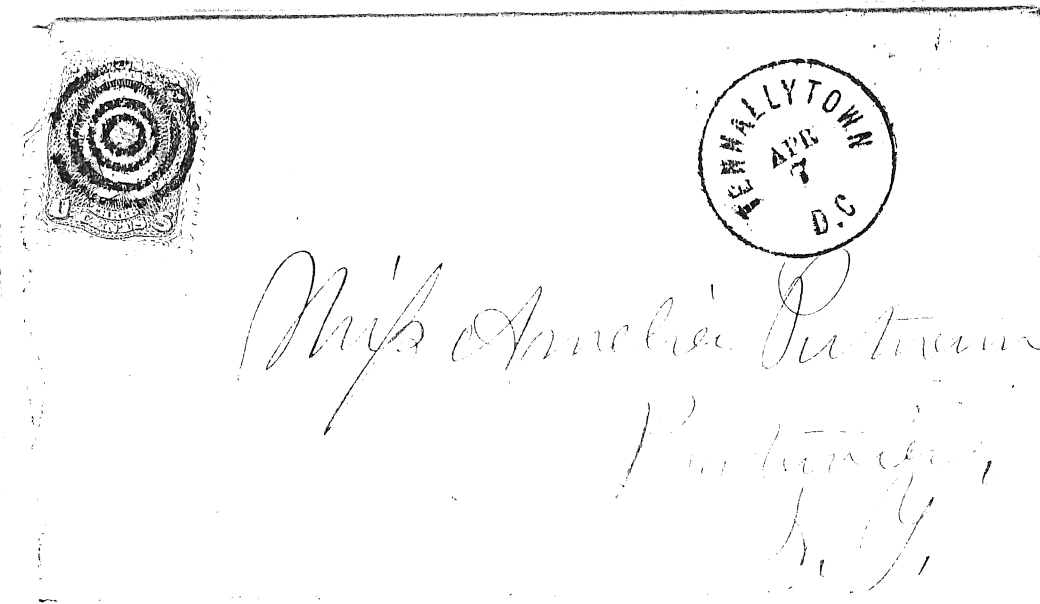 TENNALLYTOWN
APR
7
D.C
U S
Miss Amelia Putnam
N. Y.